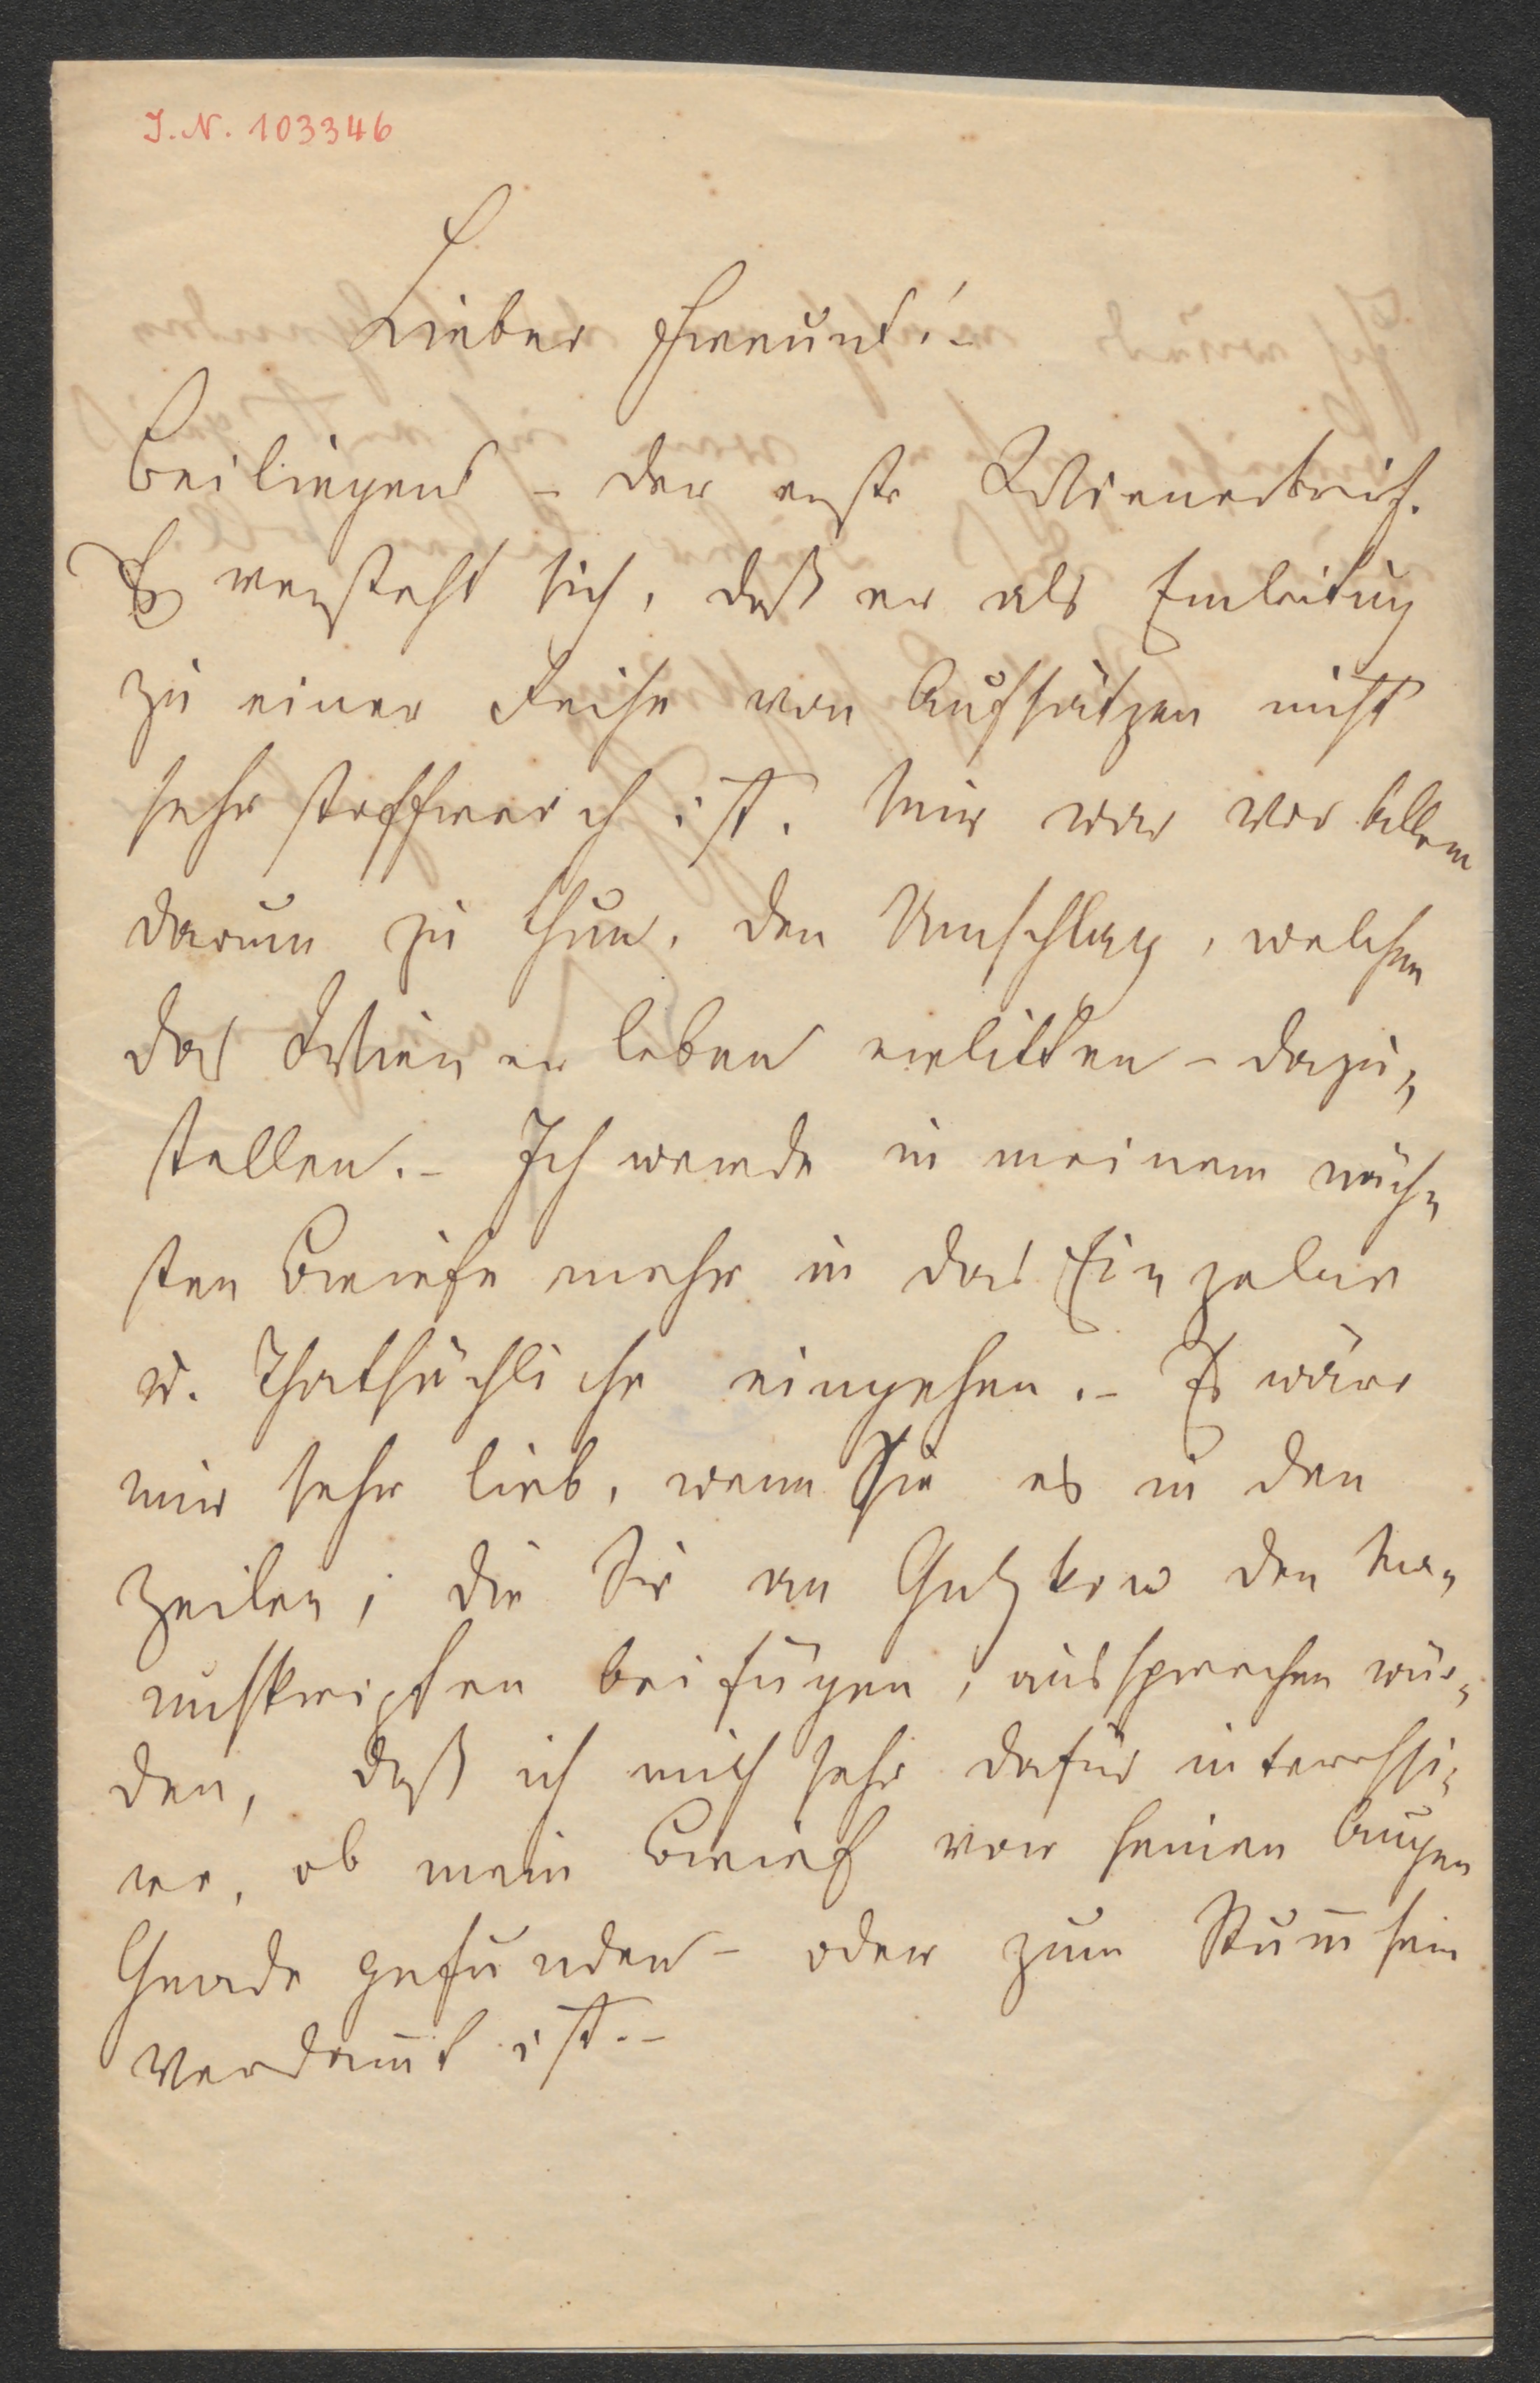 J. N. 103346
Lieber Freund! –
Beiliegend – der erste Wienerbrief.
Es versteht sich, daß er als Einleitung
zu einer Reihe von Aufsätzen nicht
sehr stoffreich ist. Mir war vor Allem
darum zu thun, den Umschlag, welchen
das Wiener leben erlitten – dazu„
stellen. – Ich werde in meinem näch„
sten Briefe mehr in das Einzelne
u. Thatsächliche eingehen. – Es wäre
mir sehr lieb, wenn Sie es in den
Zeilen, die Sie an Gutzkow den Ma„
nuskripten beifügen, aussprechen wür„
den, daß ich mich sehr dafür interessi„
re, ob mein Brief vor seinen Augen
Gnade gefunden – oder zum Stum̄sein
verdam̄t ist. –